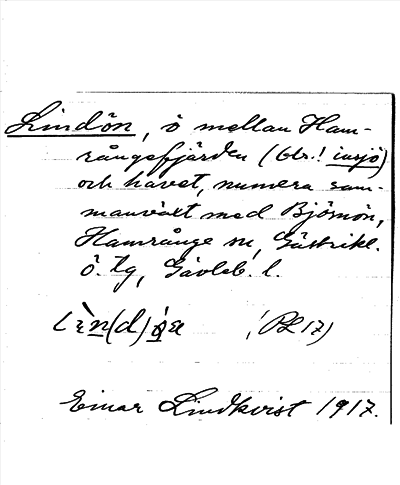 Lindön, ö mellan Ham-
rångefjärden (obs.! insjö)
och havet, numera sam-
manväxt med Björnön,
Hamrånge sn, Gästrikl.
ö. tg, Gävleb. l.
Einar Lindkvist 1917.